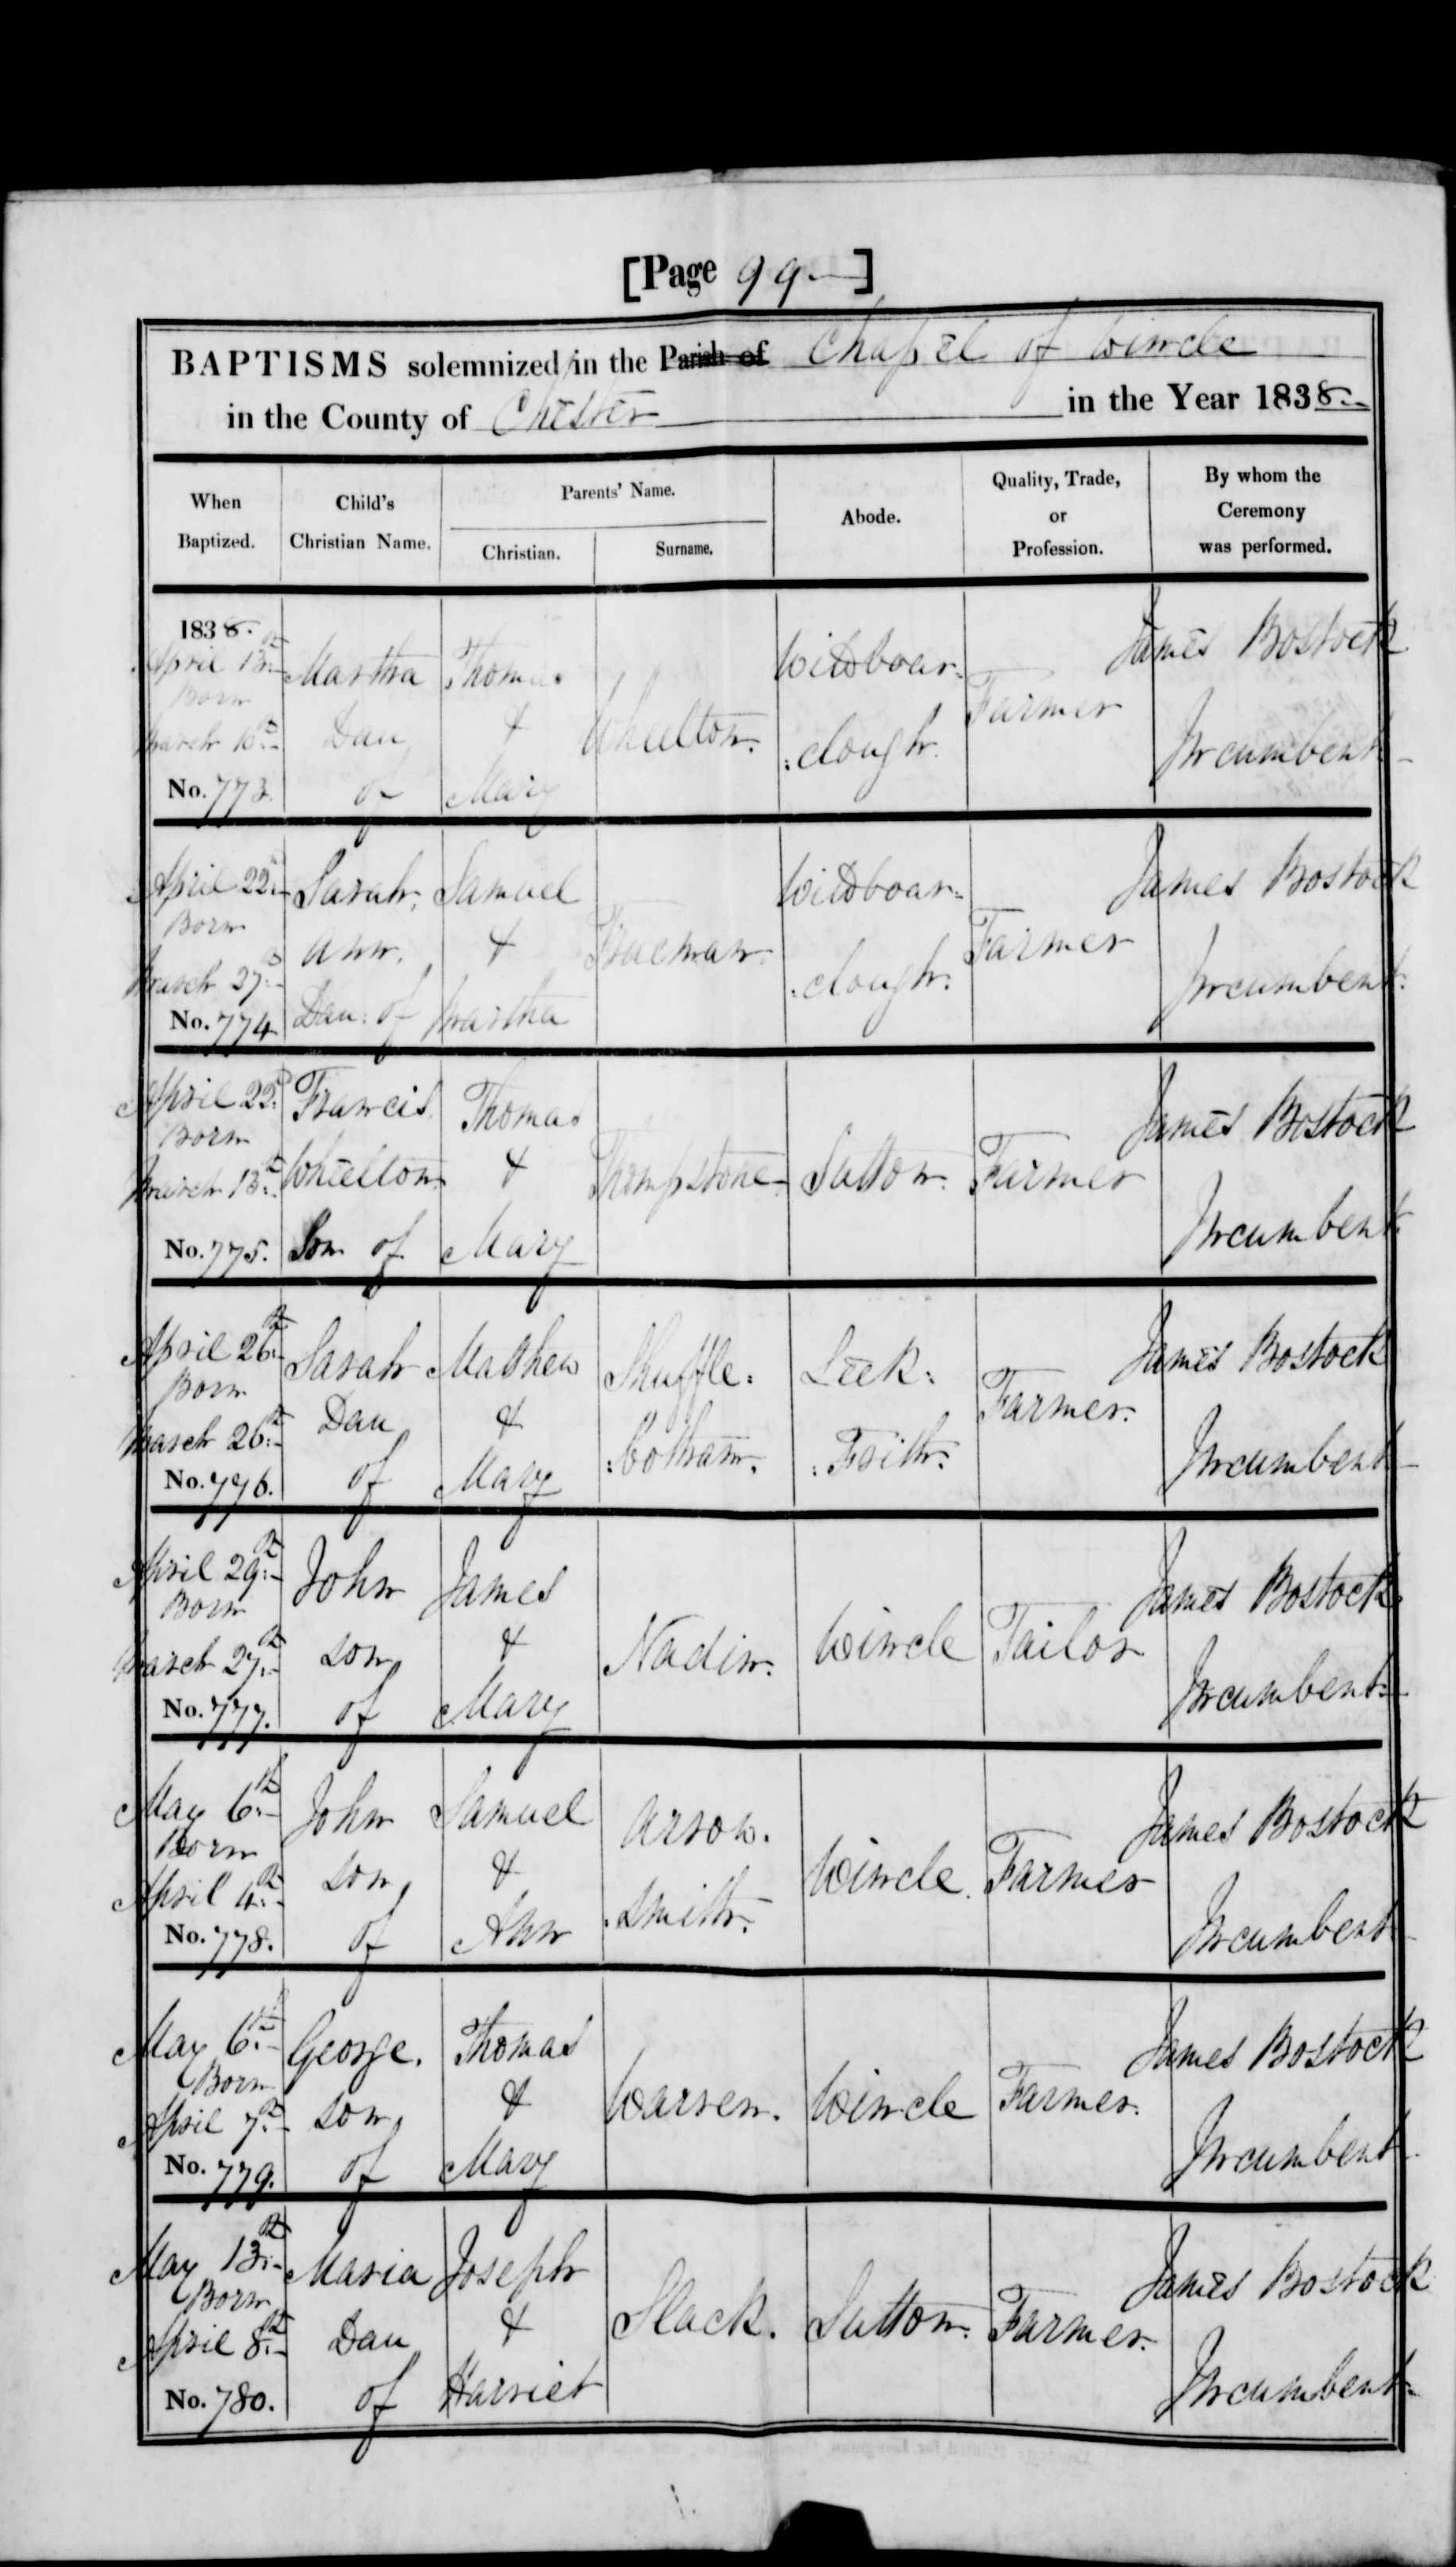 [Page 99.]
BAPTISMS solemnized in the Parish of Chapel of Wincle
in the County of Chester in the Year 1838.
When Baptized.
Child's Christian Name.
Parents' Name.
Christian.
Surname.
Abode.
Quality, Trade, or Profession.
By whom the Ceremony was performed.
1838.
April
Born
March
No. 773.
Martha
Dau
of
Thomas
&
Mary
Wheelton.
Wildboar-
:clough.
Farmer
James Bostock
Incumbent
April 22d
Born
March 27th
No. 774
Sarah
Ann.
Dau: of
Samuel
&
Martha
Trueman.
Wildboar-
:clough.
Farmer
James Bostock
Incumbent.
April 22d
Born
March 13th
No. 775.
Francis
Wheelton
Son of
Thomas
&
Mary
Thompstone
Sutton.
Farmer
James Bostock
Incumbent
April 26th
Born
March 26th
No. 776.
Sarah
Dau
of
Mathew
&
Mary
Shuffle:
:botham.
Leek:
:Frith.
Farmer.
James Bostock
Incumbent
April 29th
Born
March 27th
No. 777.
John
son
of
James
&
Mary
Nadin.
Wincle
Tailor
James Bostock
Incumbent
May 6th
Born
April 4th
No. 778.
John
son
of
Samuel
&
Ann
Arrow.
.smith.
Wincle.
Farmer
James Bostock
Incumbent
May 6th
Born
April 7th
No. 779.
George.
son
of
Thomas
&
Mary
Warren.
Wincle
Farmer.
James Bostock
Incumbent
May 13th
Born
April 8th
No. 780.
Maria
Dau
of
Joseph
&
Harriet
Slack.
Sutton.
Farmer.
James Bostock
Incumbent